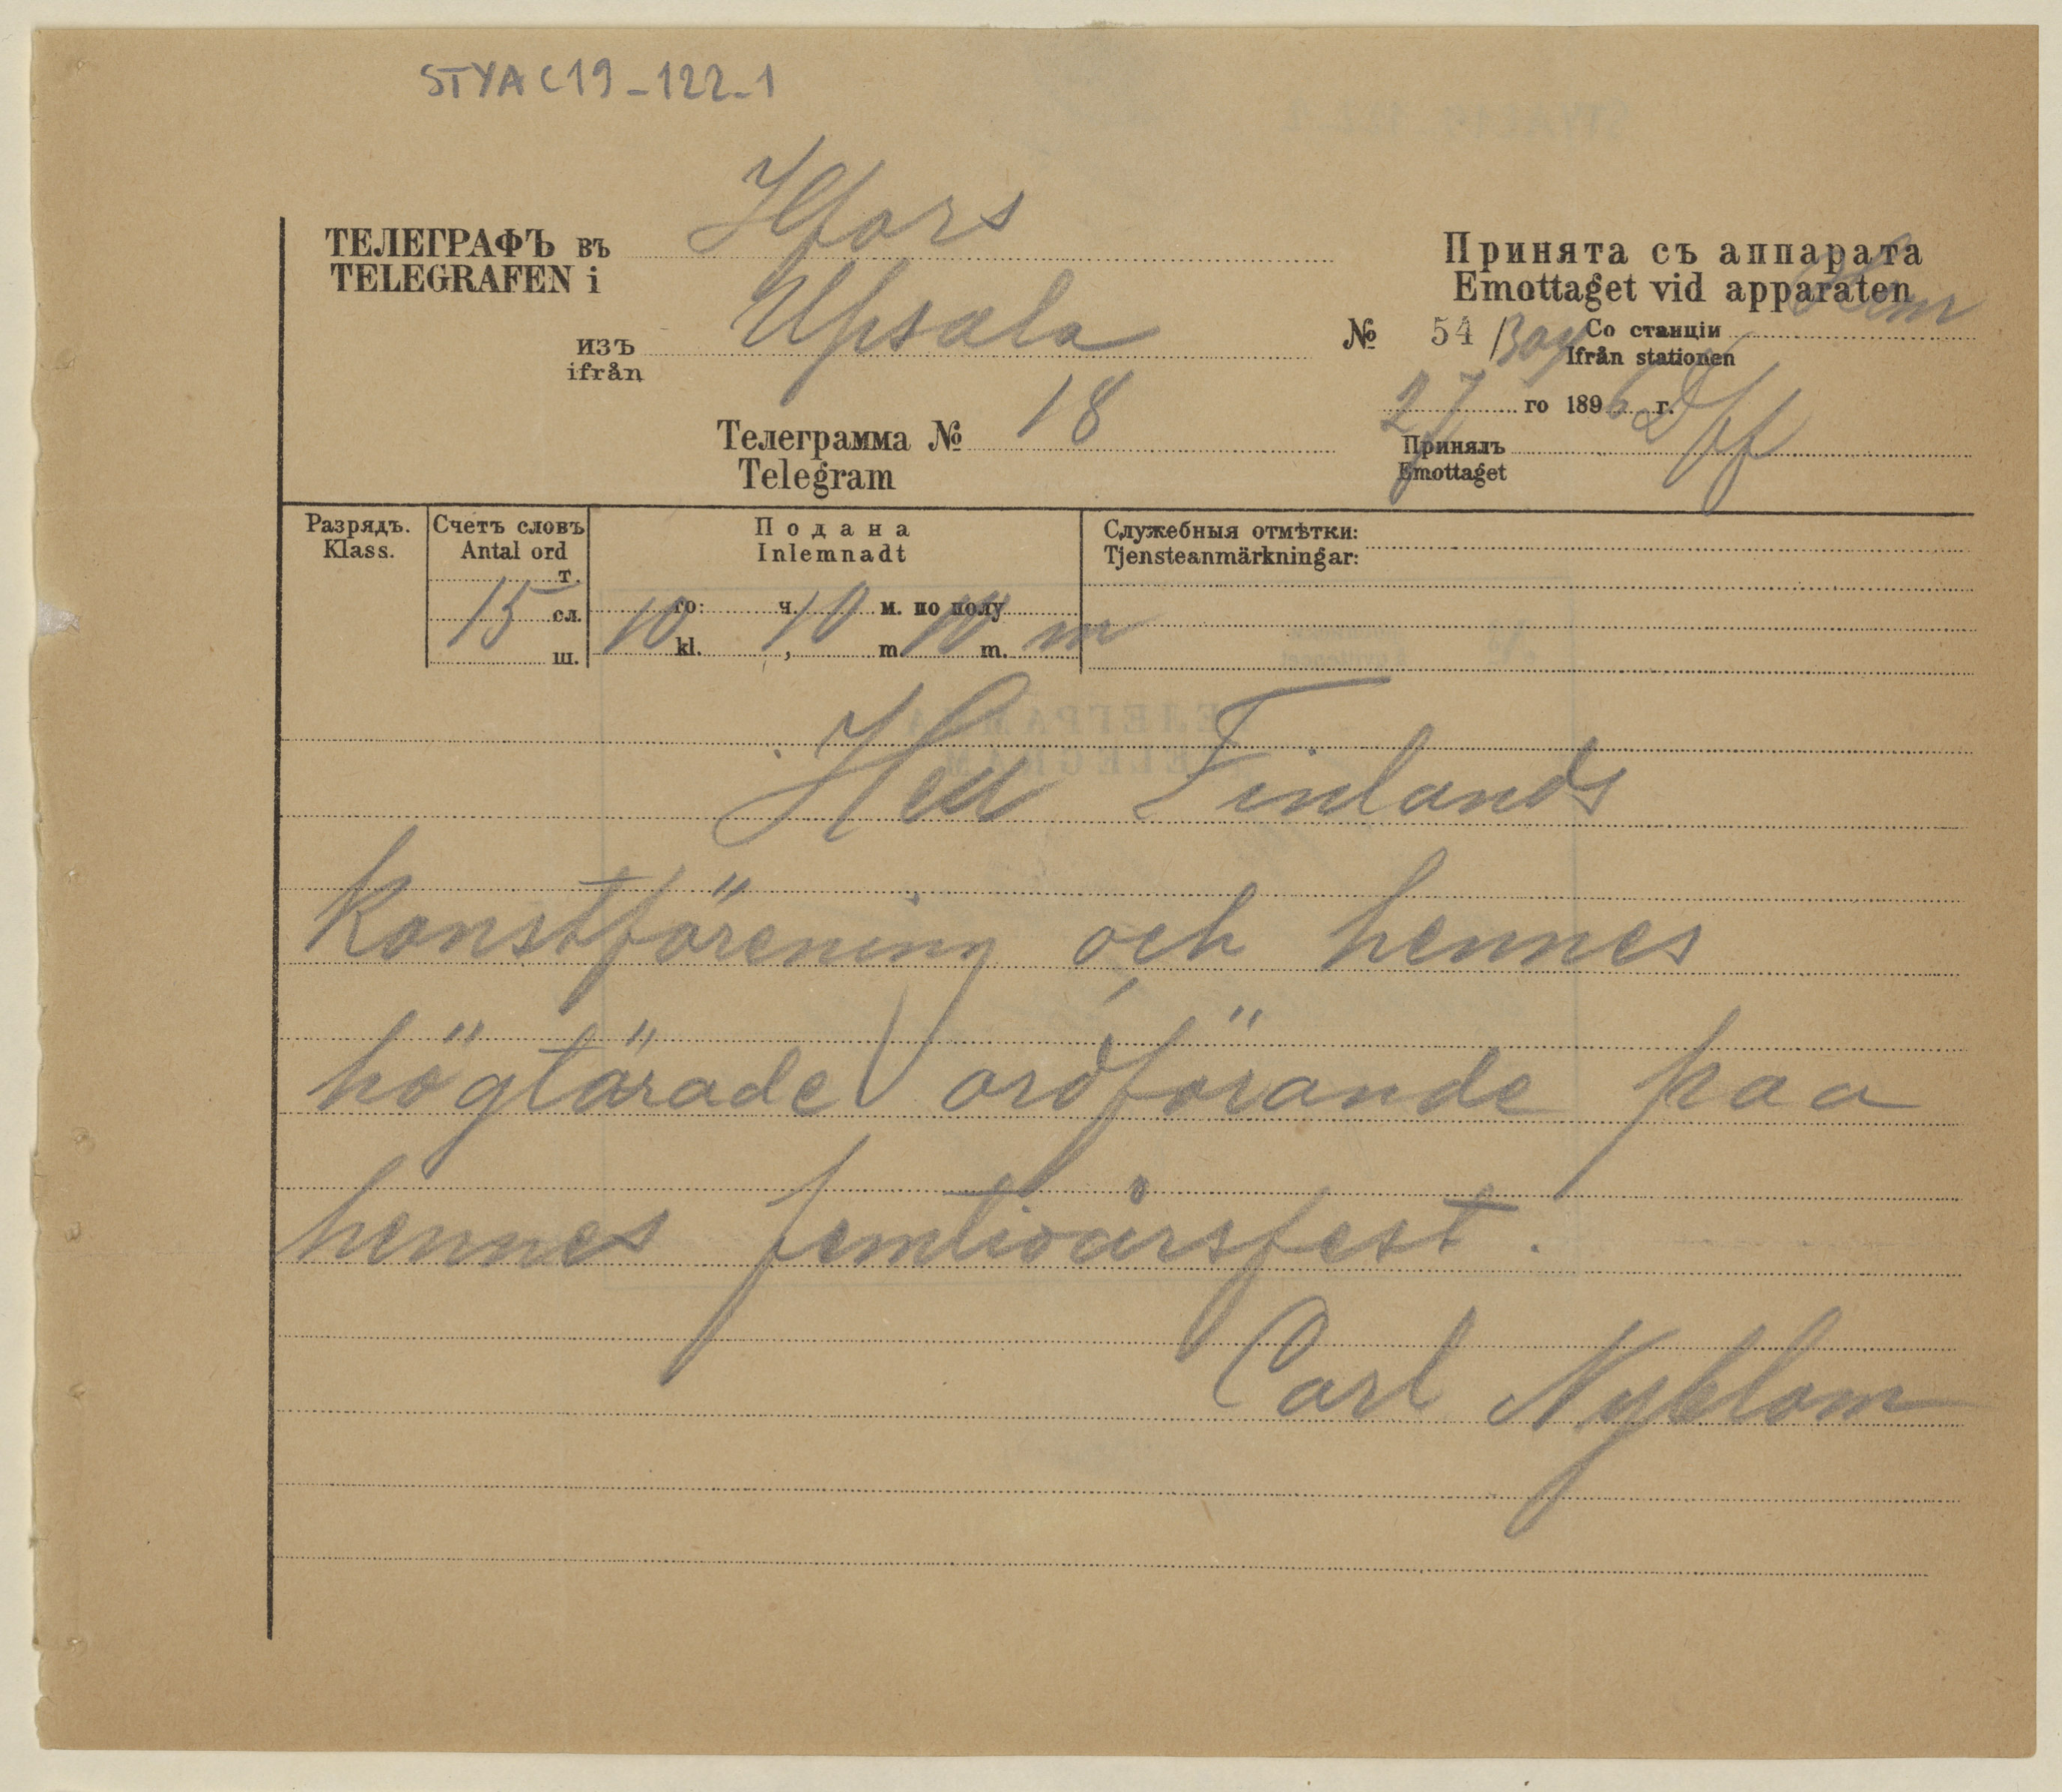 STYA C19-122-1
Hfors
ТЕЛЕГРАФЪ въ
TELEGRAFEN i
Upsala
изъ
ifrån
Принята съ аппарата
Emottaget vid apparaten
№ 54
Со станціи
Ifrån stationen
27 го 1896 г.
Принялъ
Emottaget
Телеграмма № 18
Telegram
Разрядъ.
Klass.
Счетъ словъ
Antal ord
т.
15 сл.
ш.
Подана
Inlemnadt
го: ч. м. по полу
10 10 10 m
kl. , m m.
Служебныя отмѣтки:
Tjensteanmärkningar:
Hell Finlands
Konstförening och hennes
högtärade ordförande paa
hennes femtioårsfest.
Carl Nyblom